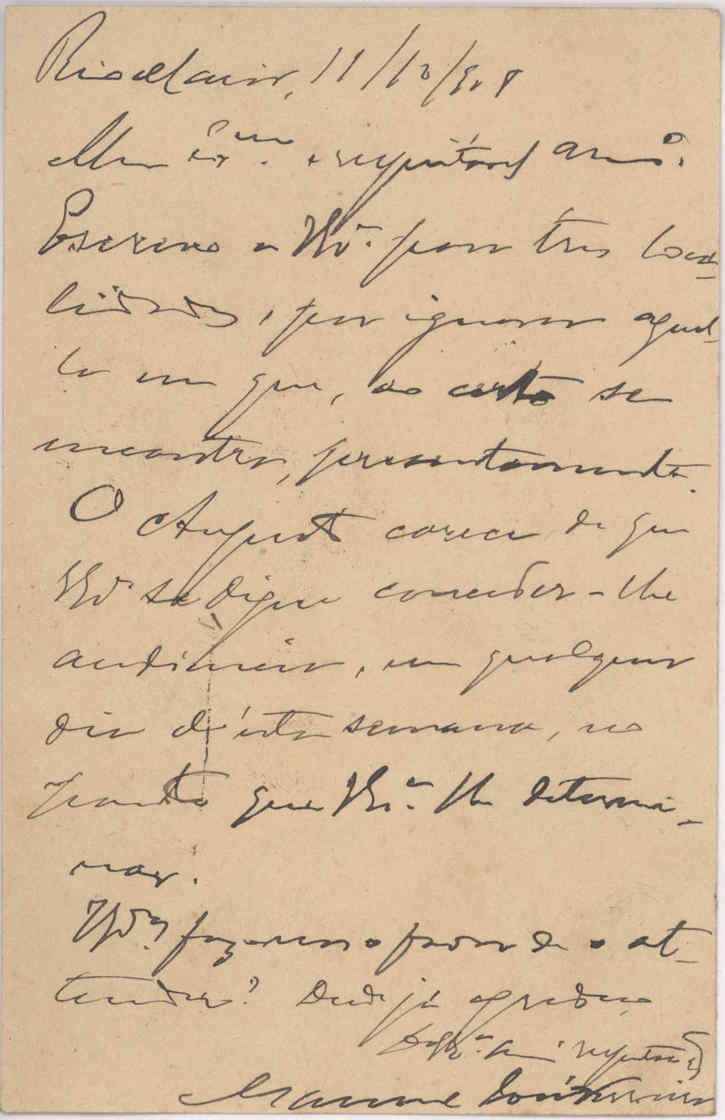 Rio Claro, 11/12/908
Meu Exmo. e respeitavel amo.
Escrevo a V.Sa. para tres loca-
lidades, por ignorar aquel-
la em que, ao certo se
encontra, presentemente.
O Augusto carece de que
V.Sa. se digne conceder-lhe
audiencia, em qualquer
dia d'esta semana, no
ponto que V.Sa. lhe determi-
nar.
V.Sa. faz-nos o favor de o at-
tender? Desde já agradeço
De V.Sa. amo. respeitador